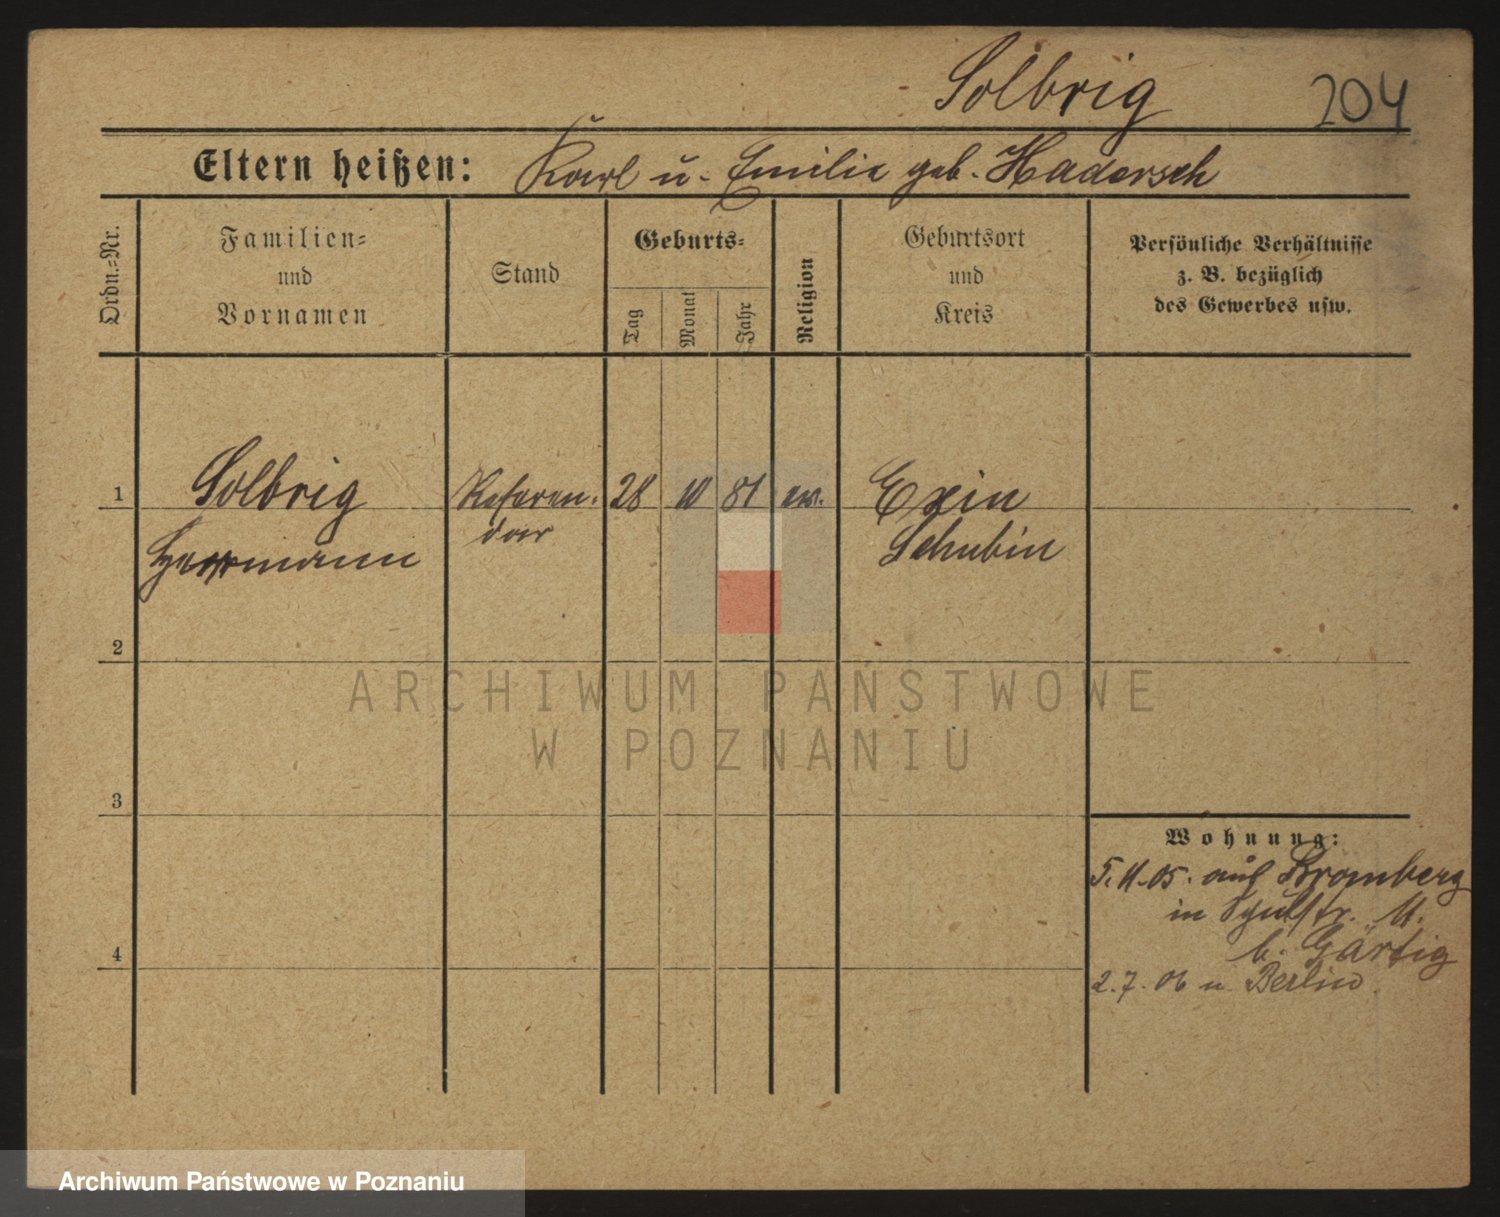 Solbrig 204
Eltern heißen: Karl u. Emilie geb. Hadersch
Ordn.-Nr.
Familien-
und
Vornamen
Stand
Geburts-
Tag
Monat
Jahr
Religion
Geburtsort
und
Kreis
Persönliche Verhältnisse
z. B. bezüglich
des Gewerbes usw.
1 Solbrig Referen- 28 10 81 ev. Exin
Herrmann dar Schubin
2
3
4
Wohnung:
5.11.05. aus Bromberg
in 11.
b. Gärtig
2.7.06 n. Berlin.
ARCHIWUM PAŃSTWOWE
W POZNANIU
Archiwum Państwowe w Poznaniu